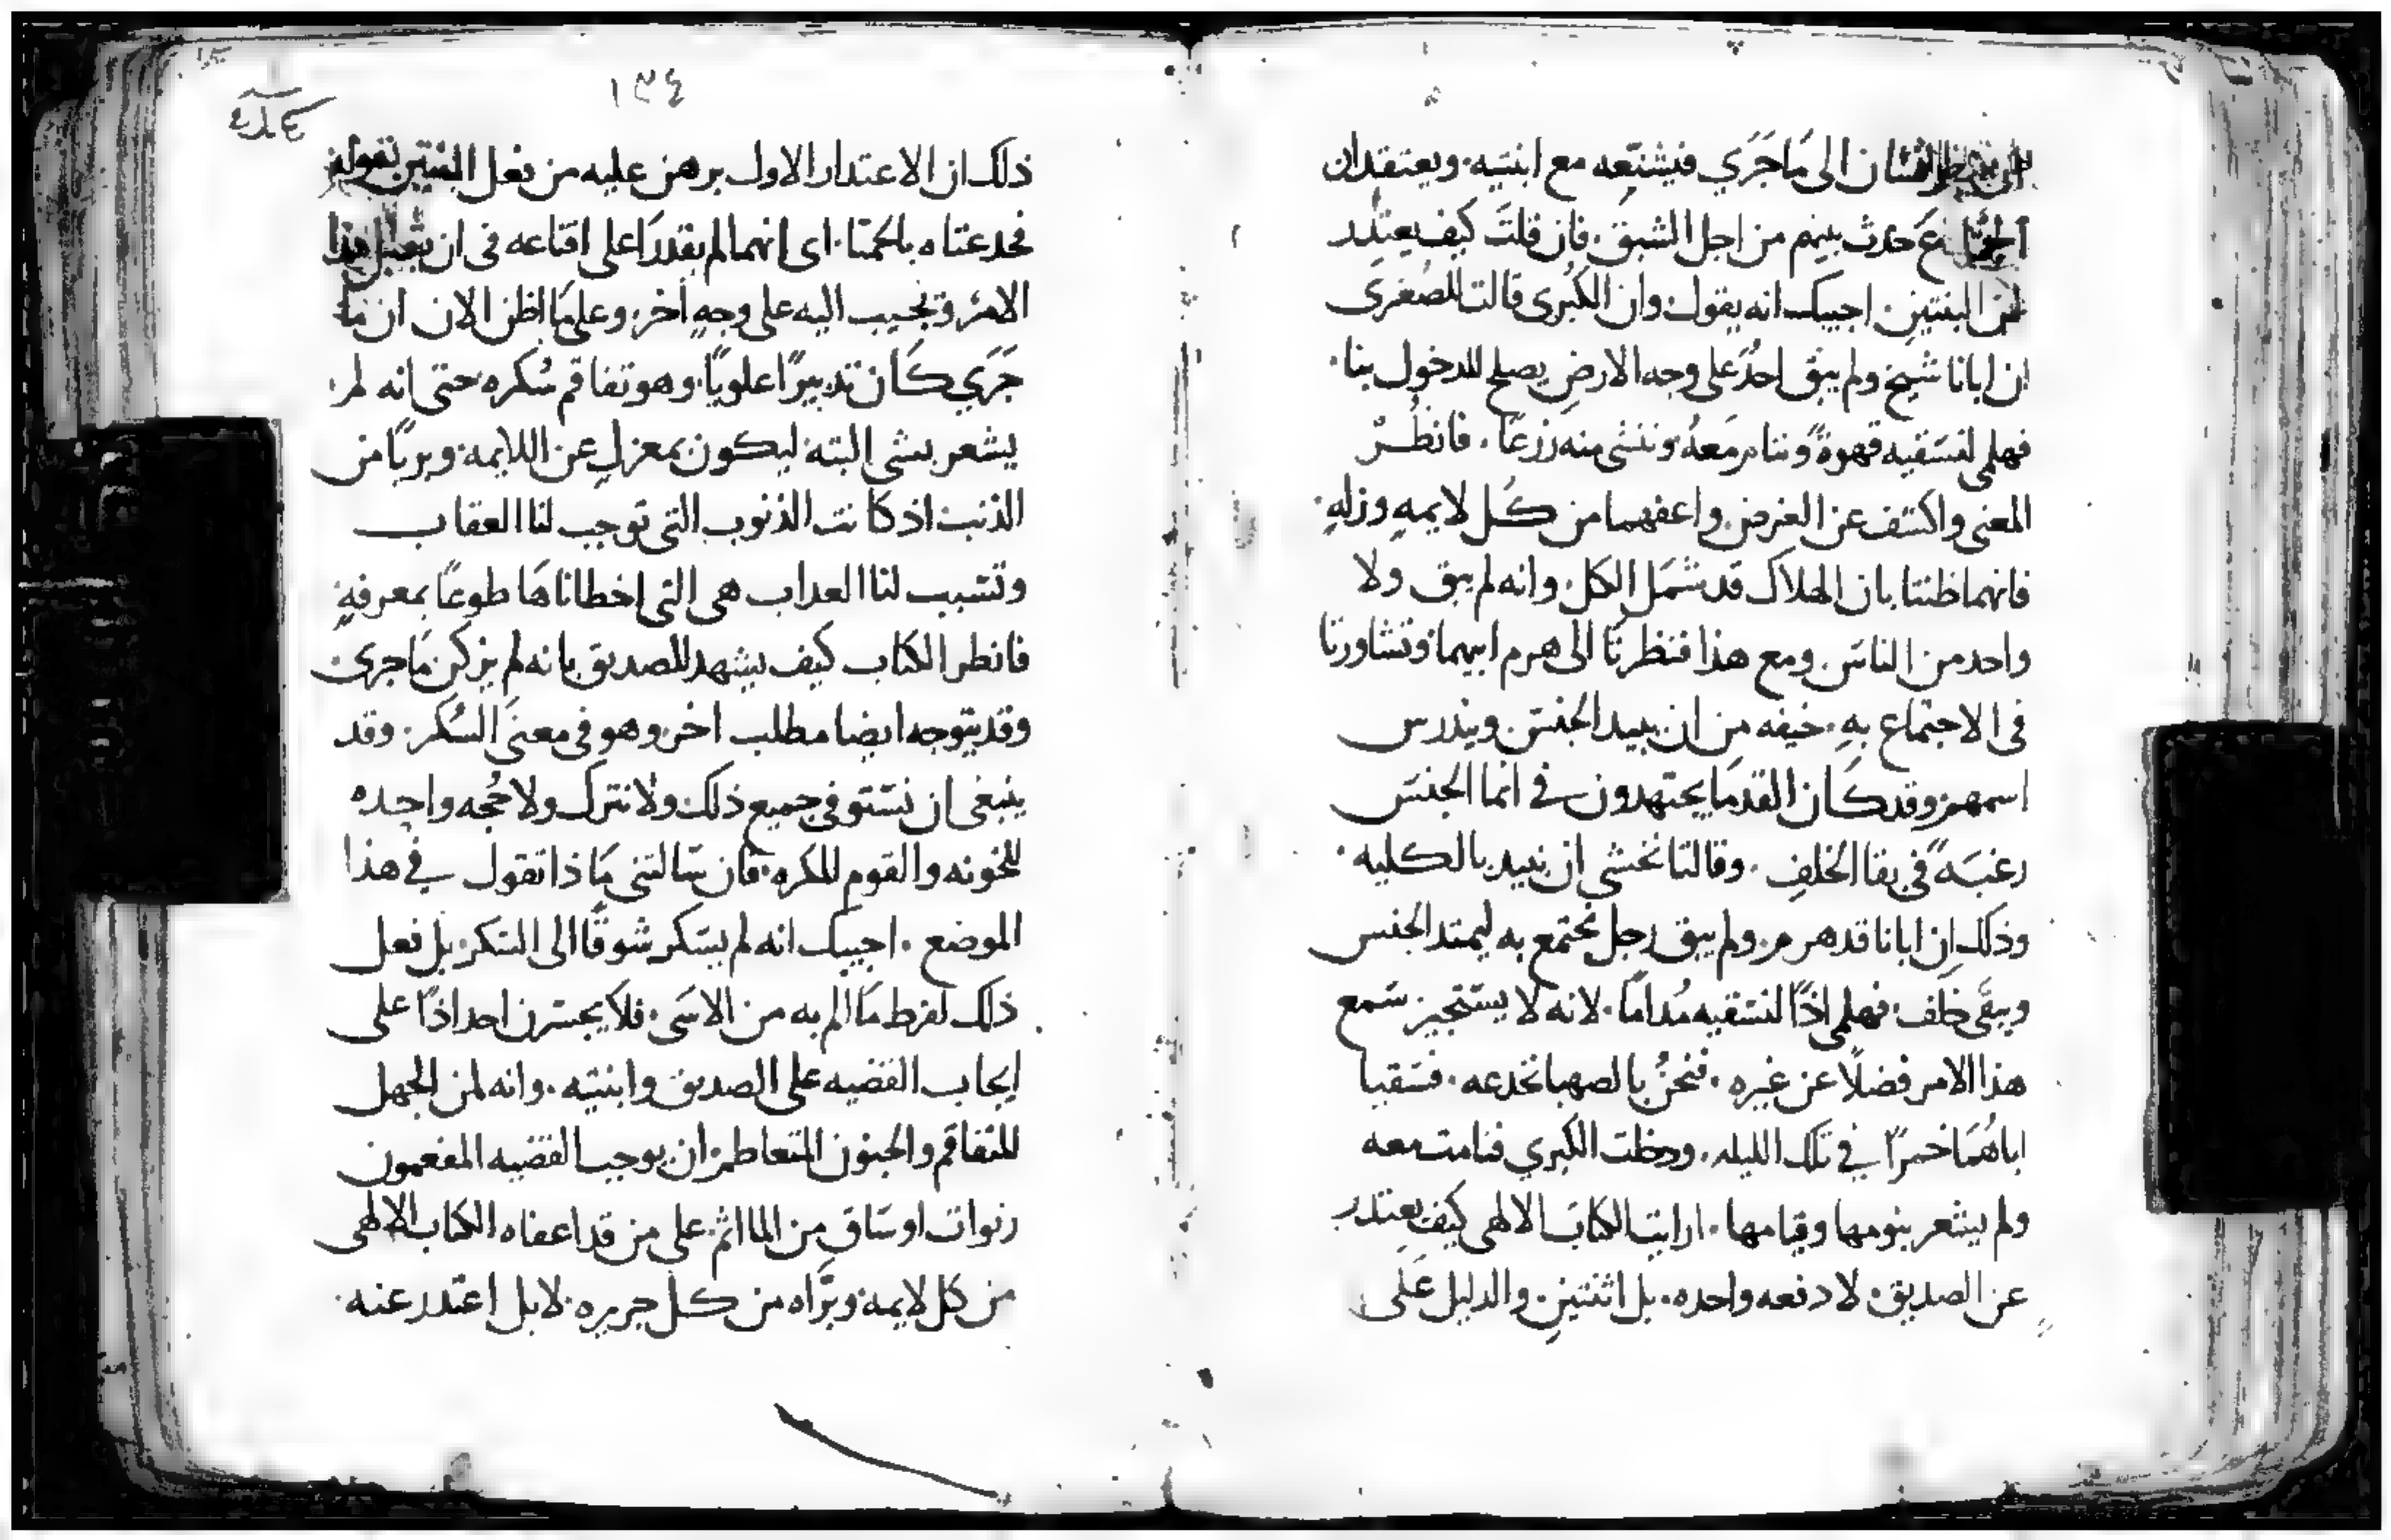 انسان الى ما جَرَي فيشنّعه مع ابنتيه. ويعتقد ان
حدث بينهم من اجل الشبق. فان قلتَ كيف يعتذر
عن البنتين. اجيبك انه يقول وان الكُبرى قالت للصُغرى
ان ابانا شيخ ولم يبقَ احدٌ على وجه الارضِ يصلح للدخول بنا.
فهلمي لنسَقيه قهوةً وننام معهُ وننشى منه زرعًا. فانظُر
المعنى واكشف عن الغرض. واعفهما من كُل لايمهٍ وزلهٍ.
فانهما ظنتا بان الهلاك قد شمَل الكل. وانه لم يبق ولا
واحد من الناسَ. ومع هذا فنظرتَا الى هرم ابيهما وتشاورتا
فى الاجتماع بهِ. خيفه من ان يبيد الجنس. ويندرس
اسمهم. وقد كان القدمَا يجتهدون في انما الجنسَ
رغبَةً فى بقا الخلفِ. وقالتا نخشى ان نبيد بالكليه.
وذلك اِن ابانا قد هرم. ولم يبق رجل نجتمع به ليمتد الجنس
ويبقَى خلف. فهلمي اذًا لنسَقيه مُدامًا. لانه لا يستجيز سَمع
هذا الامر فضلًا عن غيره. فنحنُ بالصهبا نخدعه. فسَقيا
اباهُمَا خمرًا في تلك الليله. ودخلت الكبري فنامت معه
ولم يشعر بنومها وقيامها. ارايت الكتابَ الالهى كيف يعتذر
عن الصديق. لا دفعه واحده. بل اثنتينِ. والدليل عَلى
١٣٤
ذلك ان الاعتذار الاول برهن عليه من فعل البنتين بقوله
فخدعتاه بالحمتا. اى انهما لم يقدرَا على اقناعه فى ان يقبل هذا
الامر. وتجيب اليه على وجهٍ اخر. وعلى مَا اظن الان ان ما
جَرَي كَان تدبيرًا علويًا. وهو تفاقم سُكره حتى انه لم
يشعر بشى البته. ليكون بمعزلٍ عن اللايمه. وبريًا من
الذنب. اذ كانت الذنوب التى توجب لنا العقاب
وتسَبب لنا العداب هى التى اخطاناهَا طوعًا بمعرفةٍ
فانظر الكتاب كيف يشهد للصديق بانه لم يزكن مَا جرى
وقد يتوجه ايضا مطلب اخر. وهو فى معنَى السُكر. وقد
ينبغى ان نسَتوفى جميع ذلك ولا نترك ولا حُجه واحده
للخونه والقوم المكره. فان سَالتنى مَا ذا تقول في هذا
الموضع. اجيبك انه لم يسَكر شوقًا الى السَكر. بل فعل
ذلك لفرط مَا الم به من الاسَى. فلا يجسَرن احد اذًا على
ايجاب القضيه على الصديق وابنتيه. وانه لمن الجهل
المتفاقم والجنون المتعاظم. ان يوجب القضيه المفعمون
ربوات اوسَاقٍ من الما اثم. على من قد اعفاه الكتاب الالهى
من كل لايمه. وبرَّاه من كل جريره. لا بل اعتدر عنه.